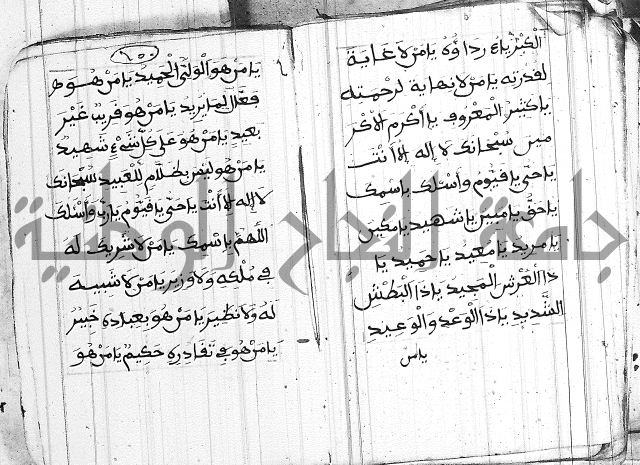 الكبرياء رداؤه يا من لا غاية
لقدرته يا من لا نهاية لرحمته
يا كثير المعروف يا أكرم الأكر
مين سبحانك لا إله إلا أنت
يا حي يا قيوم وأسئلك باسمك
يا حق يا مبين يا شهيد يا مكين
يا مريد يا معيد يا حميد يا
ذا العرش المجيد يا ذا البطش
الشديد يا ذا الوعد والوعيد
يا من
يا من هو الولي الحميد يا من هو
فعال لما يريد يا من هو قريب غير
بعيد يا من هو على كل شيء شهيد
يا من هو ليس بظلام للعبيد سبحانك
لا إله إلا أنت يا حي يا قيوم يا رب وأسئلك
اللهم باسمك يا من لا شريك له
في ملكه ولا وزير يا من لا شبيه
له ولا نظير يا من هو بعباده خبير
يا من هو في تقاديره حكيم يا من هو
جامعة النجاح الوطنية